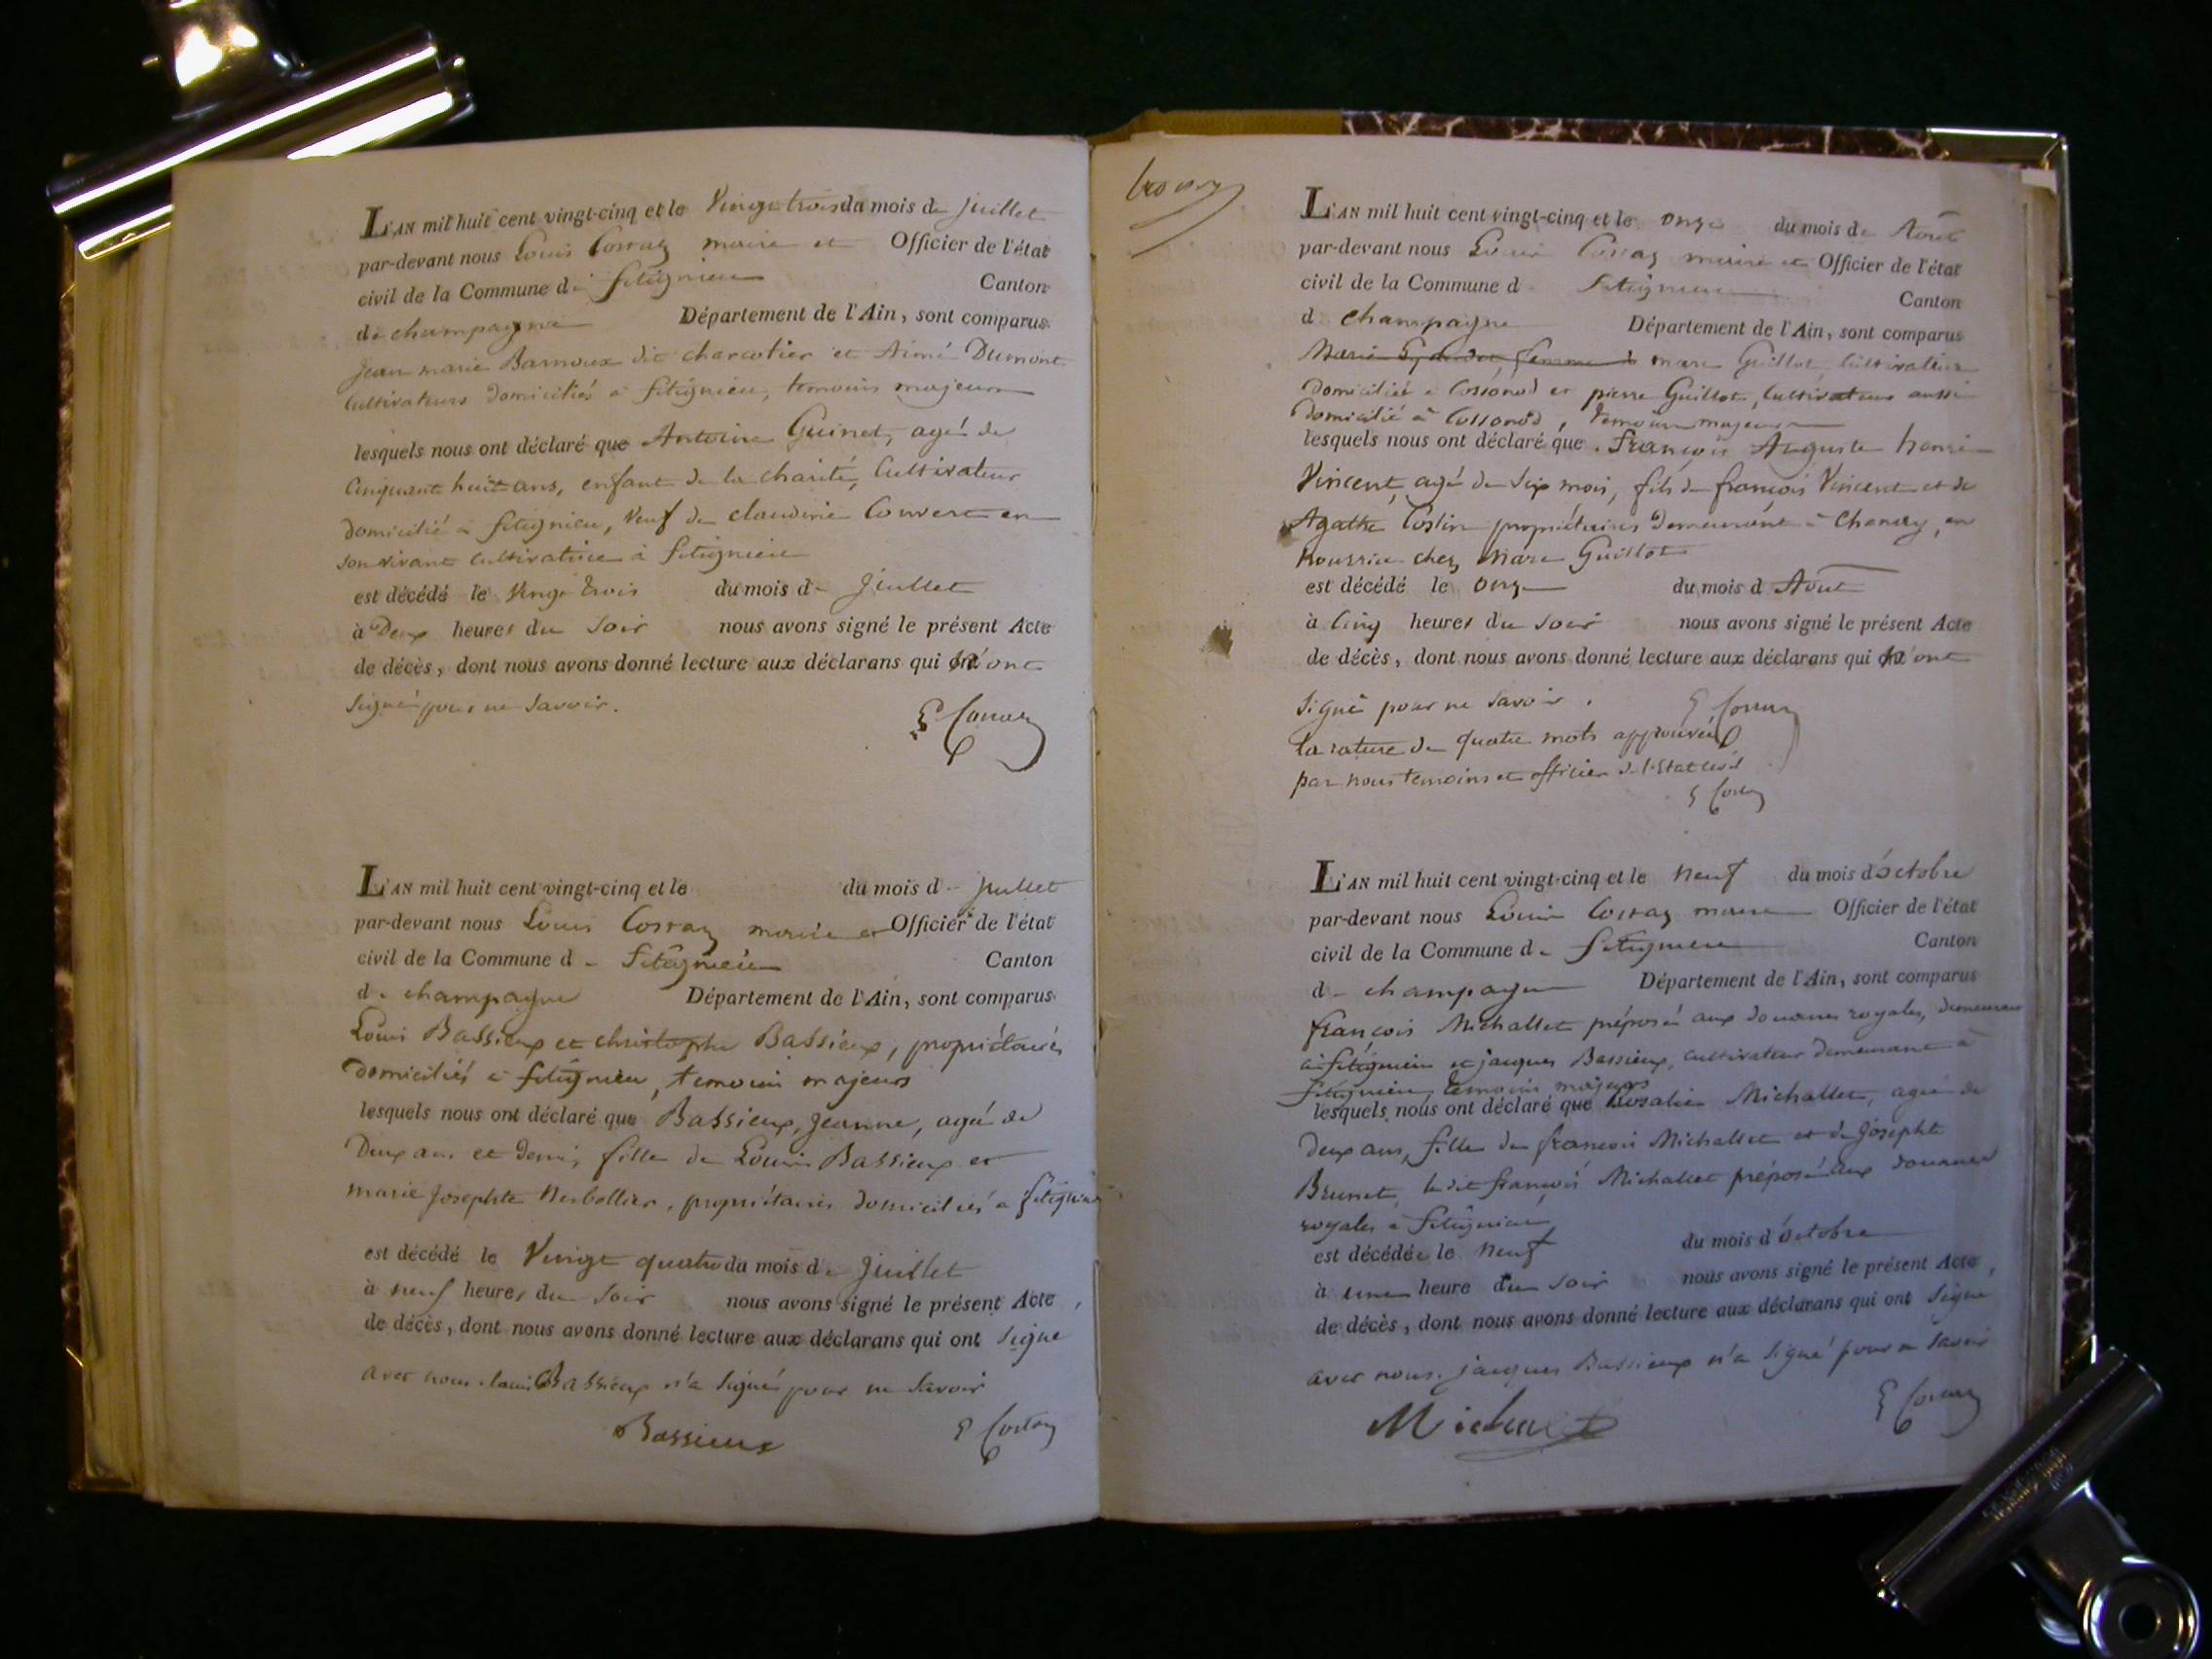 L'AN mil huit cent vingt-cinq et le Vingt trois du mois de juillet
par-devant nous Louis Cossaz maire et Officier de l'état
civil de la Commune de fitignieu Canton
de champagne Département de l'Ain, sont comparus
jean marie Barnoux dit charcotier et Aimé Dumont
Cultivateurs domiciliés à fitignieu, temoins majeurs
lesquels nous ont déclaré que Antoine Guinet, agé de
Cinquant huit ans, enfant de la charité, Cultivateur
domicilié à fitignieu, Veuf de claudine Convert en
son vivant cultivatrice à fitignieu
est décédé le vingt trois du mois de Juillet
à Deux heures du soir nous avons signé le présent Acte
de décès, dont nous avons donné lecture aux déclarans qui n'ont
signé pour ne savoir.
L Cossaz
L'AN mil huit cent vingt-cinq et le du mois d juillet
par-devant nous Louis Cossaz maire et Officier de l'état
civil de la Commune de fitignieu Canton
de champagne Département de l'Ain, sont comparus
Louis Bassieux et christophe Bassieux, propriétaires
domiciliés à fitignieu, temoins majeurs
lesquels nous ont déclaré que Bassieux, jeanne, agé de
Deux ans et demi, fille de Louis Bassieux et
marie josephte, propriétaires domiciliés a fitignieu
est décédé le Vingt quatre du mois de Juillet
à neuf heures du soir nous avons signé le présent Acte,
de décès, dont nous avons donné lecture aux déclarans qui ont signé
avec nous. louis Bassieux n'a signé pour ne savoir
Bassieux L Cossaz
L'AN mil huit cent vingt-cinq et le onze du mois de Aout
par-devant nous Louis Cossaz maire et Officier de l'état
civil de la Commune d fitignieu Canton
d champagne Département de l'Ain, sont comparus
Marie femme marc Guillot Cultivateur
domicilié à Cossonod et pierre Guillot, Cultivateur aussi
domicilié à Cossonod, temoins majeurs
lesquels nous ont déclaré que françois Auguste henri
Vincent, agé de six mois, fils de françois Vincent et de
Agathe Costin propriétaires demeurant à, en
nourrice chez marc Guillot
est décédé le onze du mois d Aout
à cinq heures du soir nous avons signé le présent Acte
de décès, dont nous avons donné lecture aux déclarans qui n'ont
signé pour ne savoir. L Cossaz
la rature de quatre mots approuvée
par nous temoins et officier de l'Etat civil
L Cossaz
L'AN mil huit cent vingt-cinq et le neuf du mois d'octobre
par-devant nous Louis Cossaz maire Officier de l'état
civil de la Commune de fitignieu Canton
de champagne Département de l'Ain, sont comparus
françois Michallet préposé aux douanes royales, demeurant
à fitignieu et jacques Bassieux, cultivateur demeurant à
fitignieu, temoins majeurs
lesquels nous ont déclaré que Rosalie Michallet, agée de
deux ans, fille de françois Michallet et de Josephte
Brunet, le dit françois Michallet préposé aux douanes
royales à fitignieu
est décédée le neuf du mois d'octobre
à une heure du soir nous avons signé le présent Acte,
de décès, dont nous avons donné lecture aux déclarans qui ont signé
avec nous. jacques Bassieux n'a signé pour ne savoir
Michallet L Cossaz